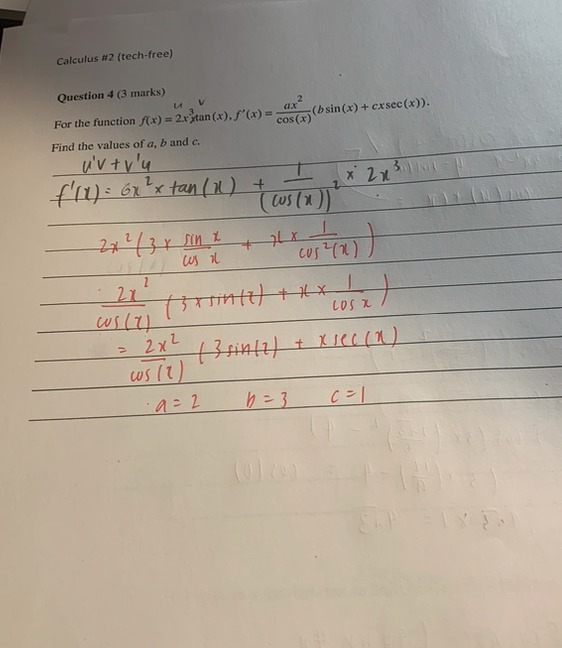 Calculus #2 (tech-free)
Question 4 (3 marks)
u v
For the function f(x) = 2x³tan(x), f'(x) = ax²/cos(x) (b sin(x) + cxsec(x)).
Find the values of a, b and c.
u'v + v'u
f'(x) = 6x² × tan(x) + 1/(cos(x))² × 2x³
2x² (3 × sin x/cos x + x × 1/cos²(x))
2x²/cos(x) (3 × sin(x) + x × 1/cos x)
= 2x²/cos(x) (3 sin(x) + x sec(x))
a = 2 b = 3 c = 1